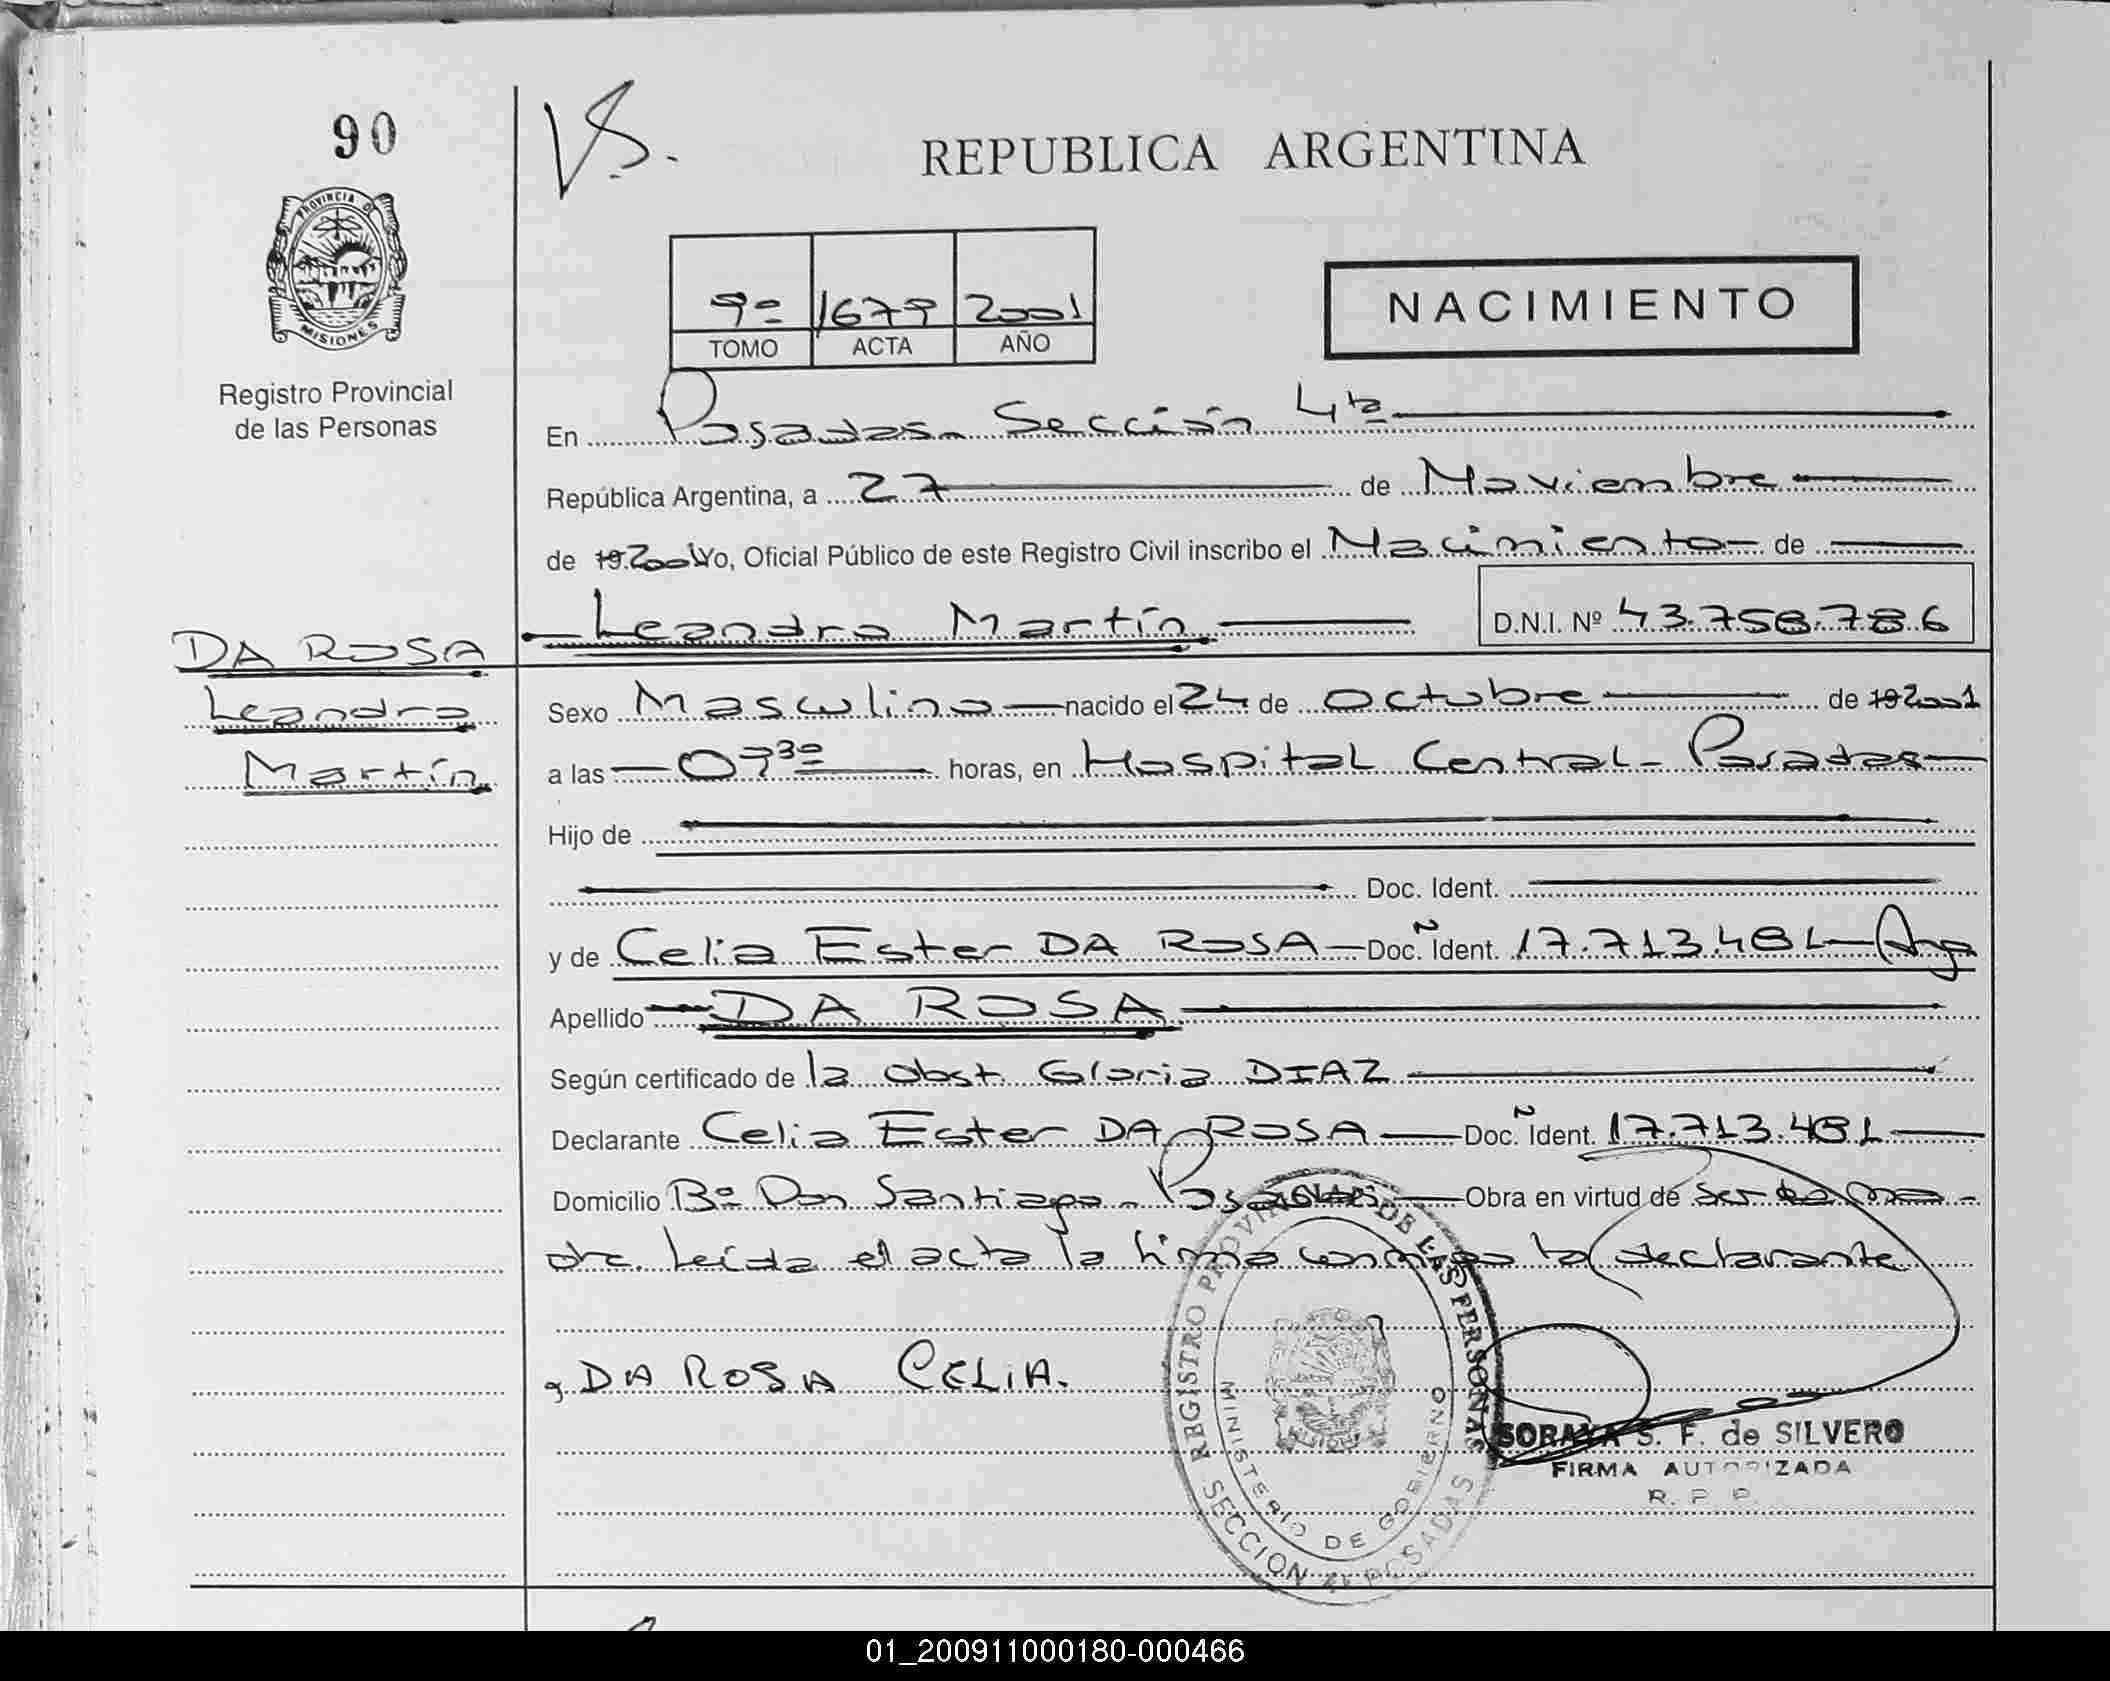 90
VS.
REPUBLICA ARGENTINA
PROVINCIA DE MISIONES
9º 1679 2001
TOMO ACTA AÑO
NACIMIENTO
Registro Provincial
de las Personas
En Posadas Sección 4ta
República Argentina, a 27 de Noviembre
de 19 2001 Yo, Oficial Público de este Registro Civil inscribo el Nacimiento de
Leandro Martín D.N.I. Nº 43.758.786
DA ROSA
Leandro
Martín
Sexo Masculino nacido el 24 de Octubre de 19 2001
a las 07 30 horas, en Hospital Central - Posadas
Hijo de
Doc. Ident.
y de Celia Ester DA ROSA Doc. Ñ Ident. 17.713.481 Arga
Apellido DA ROSA
Según certificado de la Obst. Gloria DIAZ
Declarante Celia Ester DA ROSA Doc. Ñ Ident. 17.713.481
Domicilio Bº Don Santiago - Posadas Obra en virtud de ser la ma-
dre. Leída el acta la firma conmigo la declarante
DA ROSA CELiA.
REGISTRO PROVINCIAL DE LAS PERSONAS
MINISTERIO DE GOBIERNO
SECCION 4ª POSADAS
SORAYA S. F. de SILVERO
FIRMA AUTORIZADA
R. P. P.
01_200911000180-000466